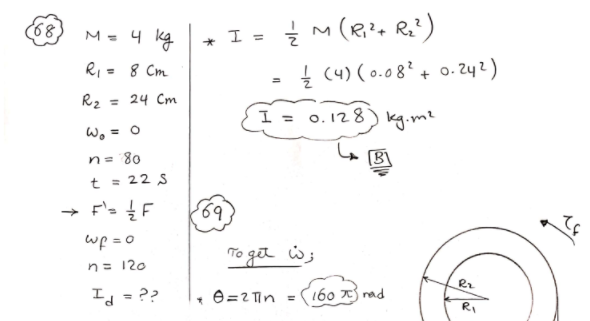 68
M = 4 kg
R₁ = 8 Cm
R₂ = 24 Cm
ω₀ = 0
n = 80
t = 22 S
→ F' = ½ F
ωf = 0
n = 120
I_d = ??
* I = ½ M (R₁² + R₂²)
= ½ (4) (0.08² + 0.24²)
I = 0.128 kg.m²
B
69
To get ω;
* θ = 2πn = 160 π rad
τf
R₂
R₁